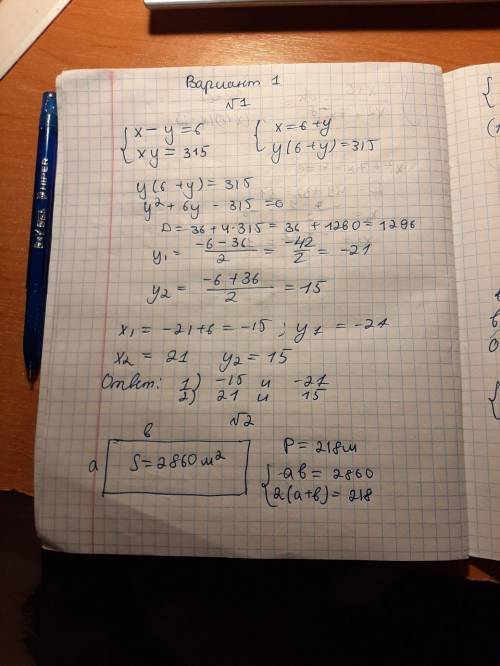 Вариант 1
№1
{ x - y = 6
xy = 315
{ x = 6 + y
y(6 + y) = 315
y(6 + y) = 315
y² + 6y - 315 = 0
D = 36 + 4·315 = 36 + 1260 = 1296
y₁ = (-6 - 36)/2 = -42/2 = -21
y₂ = (-6 + 36)/2 = 15
x₁ = -21 + 6 = -15 ; y₁ = -21
x₂ = 21 y₂ = 15
Ответ: 1) -15 и -21
2) 21 и 15
№2
в
а
S = 2860 м²
P = 218 м
{ ав = 2860
2(а+в) = 218